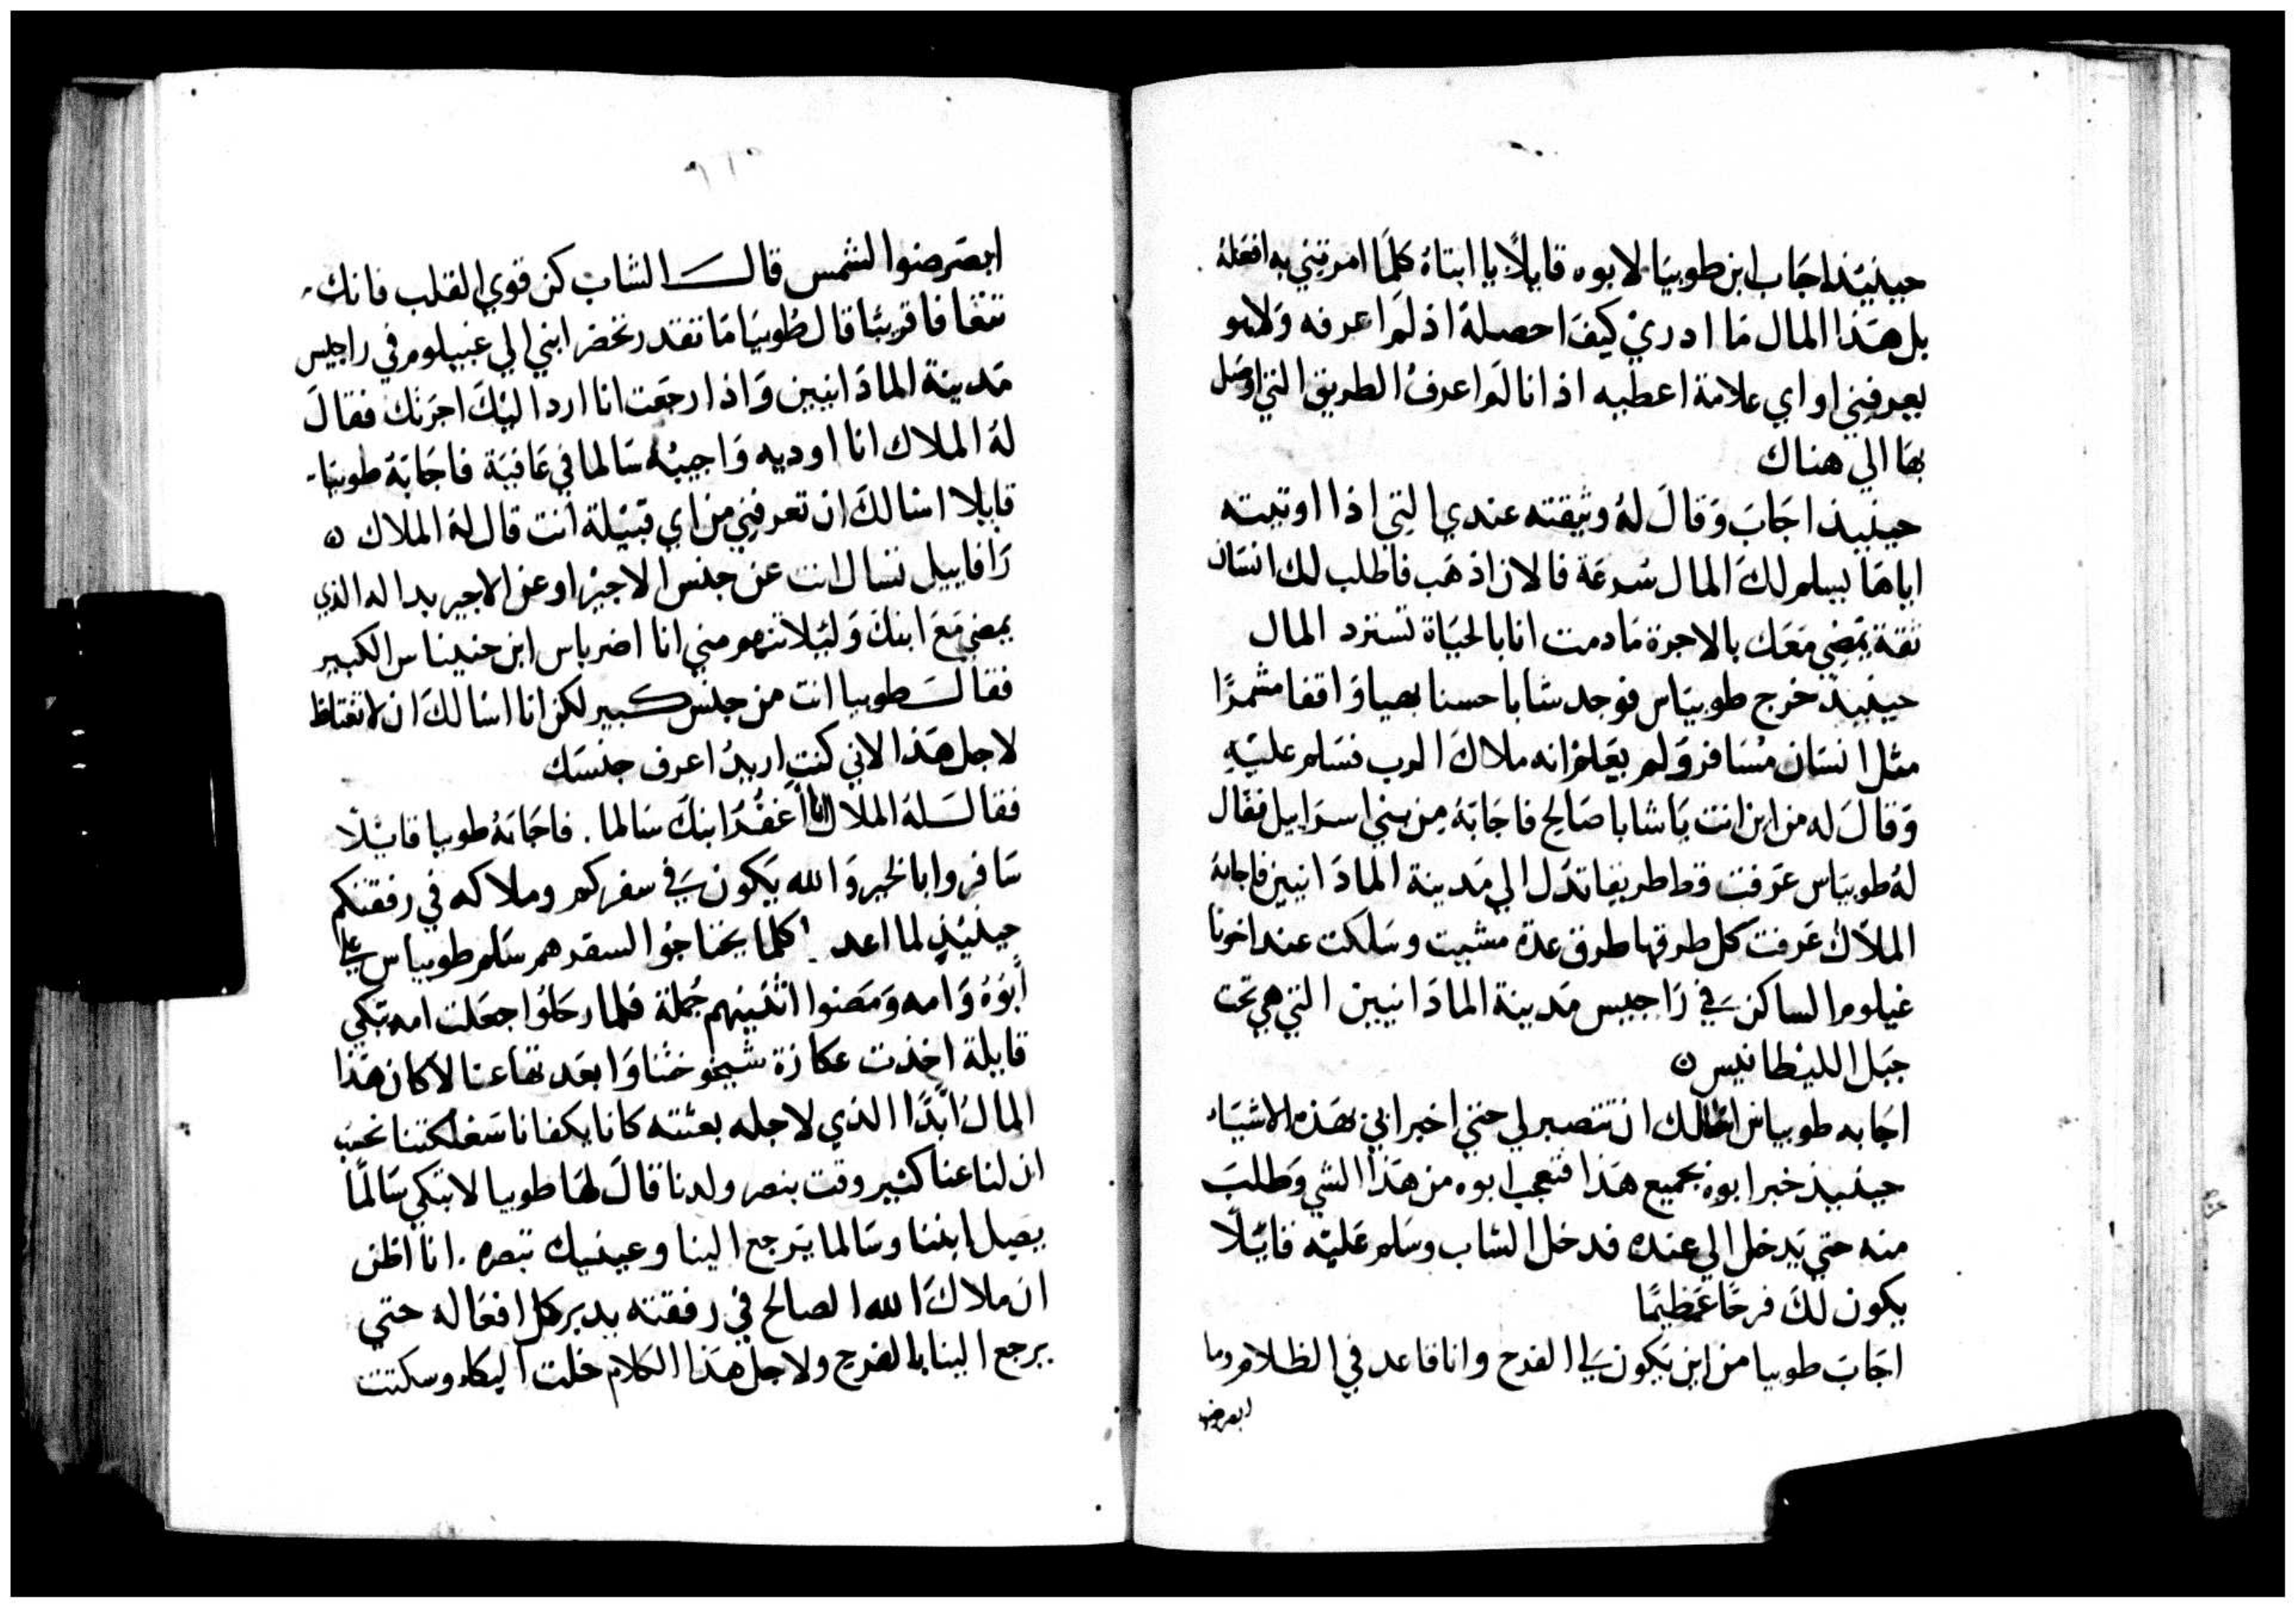 حينيئذ اجَاب ابن طوبيَا لابوه قايلًا يا ابتاة كلمَا امرتني به افعلهُ
بل هَذا المال مَا ادريْ كيفَ احصلهُ اذ لمَ اعرفه وَلاهو
يعرفني او اي علامة اعطيه اذ انا لمَ اعرفُ الطريق التي اوصَل
بهَا الي هناك
حينيذ اجَابَ وَقالَ لهُ وثيقته عندي التي اذا اوتيته
اياهَا يسلم لكَ المال سُرعَة فالان اذهَب فاطلب لك انسَان
ثقة يمَضِي مَعَك بالاجرة مَا دمت انا بالحيَاة تسترد المال
حينيذ خرج طوبيَاس فوجد شابا حسنا بهيا وَاقفا مشمرًا
مثل انسَان مُسَافر وَلم يعَلمْ انه ملاكَ الرب فسَلم عليَهِ
وَقالَ له من اين انت يَا شابا صَالح فاجَابَهُ مِن بني اسرَاييل فقال
لهُ طوبيَاس عَرفت قط طريقا تدُل الي مَدينة المادَانيين فاجابهُ
الملَاك عَرفت كل طرقها طرق عدة مشيت وسَلكت عند اخونا
غيلوم الساكن في رَاجيس مَدينة المادَانيين التي هي تحت
جبَل الليْطانيس ن
اجَابه طوبياس اسَالك ان تتصبر لي حتي اخبر ابي بهَذه الاشيَاء
حينيذ خبر ابوه بجميع هَذا فتعجب ابوه من هَذا الشي وَطلبَ
منه حتي يَدخل الي عنده فدخل الشاب وسَلم عَليَه قايَلًا
يكون لكَ فرحًا عَظيمًا
اجَابَ طوبيا من اين يَكون لي الفرح وانا قاعد في الظلام وما
ابصر ضو
ابصَر ضوا الشمس قالـــَ الشاب كن قوي القلب فانك
تتعَافا قريبًا قال طوبيَا مَا تقدر تخضر ابني الي غيبلوم في راجيس
مَدينة المادَانيين وَاذا رجَعت انا ارد اليْكَ اجرَتك فقالَ
لهُ الملاك انا اوديه وَاجيبُه سَالما في عَافيَة فاجَابَهُ طوبيَا
قايلا اسَالكَ ان تعرفني من اي قبيْلة انت قال لهُ الملاك ن
رَافاييل تسال انت عن جنس الاجيْر او عن الاجير بداله الذي
يمضي مَعَ ابنكَ وَليْلا تتهم مني انا اضرياس ابن حنيناس الكبير
فقالــَ طوبيا انت من جنس كبير لكن انا اسَالكَ ان لا تغتاظ
لاجل هَذا لاني كنت اريدُ اعرف جنسَك
فقالــَ لهُ الملاك انا أعَقدُ ابنكَ سَالما . فاجَابَهُ طوبيا قايَلًا
سَافروا بالخير وَالله يَكون في سفركم وملاكه في رفقتكم
حينيْذِ لما اعد كلما يحتاجُوا السفرهم سَلم طوبياس علي
أبوُهُ وَامه وَمَضوا اثنيَنهم جُملة فلما رحَلُوا جعَلت امه تبَكي
قايلة اخذت عكازة شيخوختنا وَابعَدتها عنا لا كان هَذا
المالُ ابَدًا الذي لاجله بعثته كانا يكفانا سَغلكتنا نحسَب
ان لنا عنا كثير وقت بنصر ولدنا قالَ لهَا طوبيا لا تبَكي سَالمًا
يصَيل ابننا وسَالما يَرجع الينا وعينيك تبصره . انا اظن
ان ملاكَ الله الصالح في رفقته يدبر كل افعَاله حتي
يرجع الينا بالفرج ولاجل هَذا الكلام خلت البكاء وسكتت